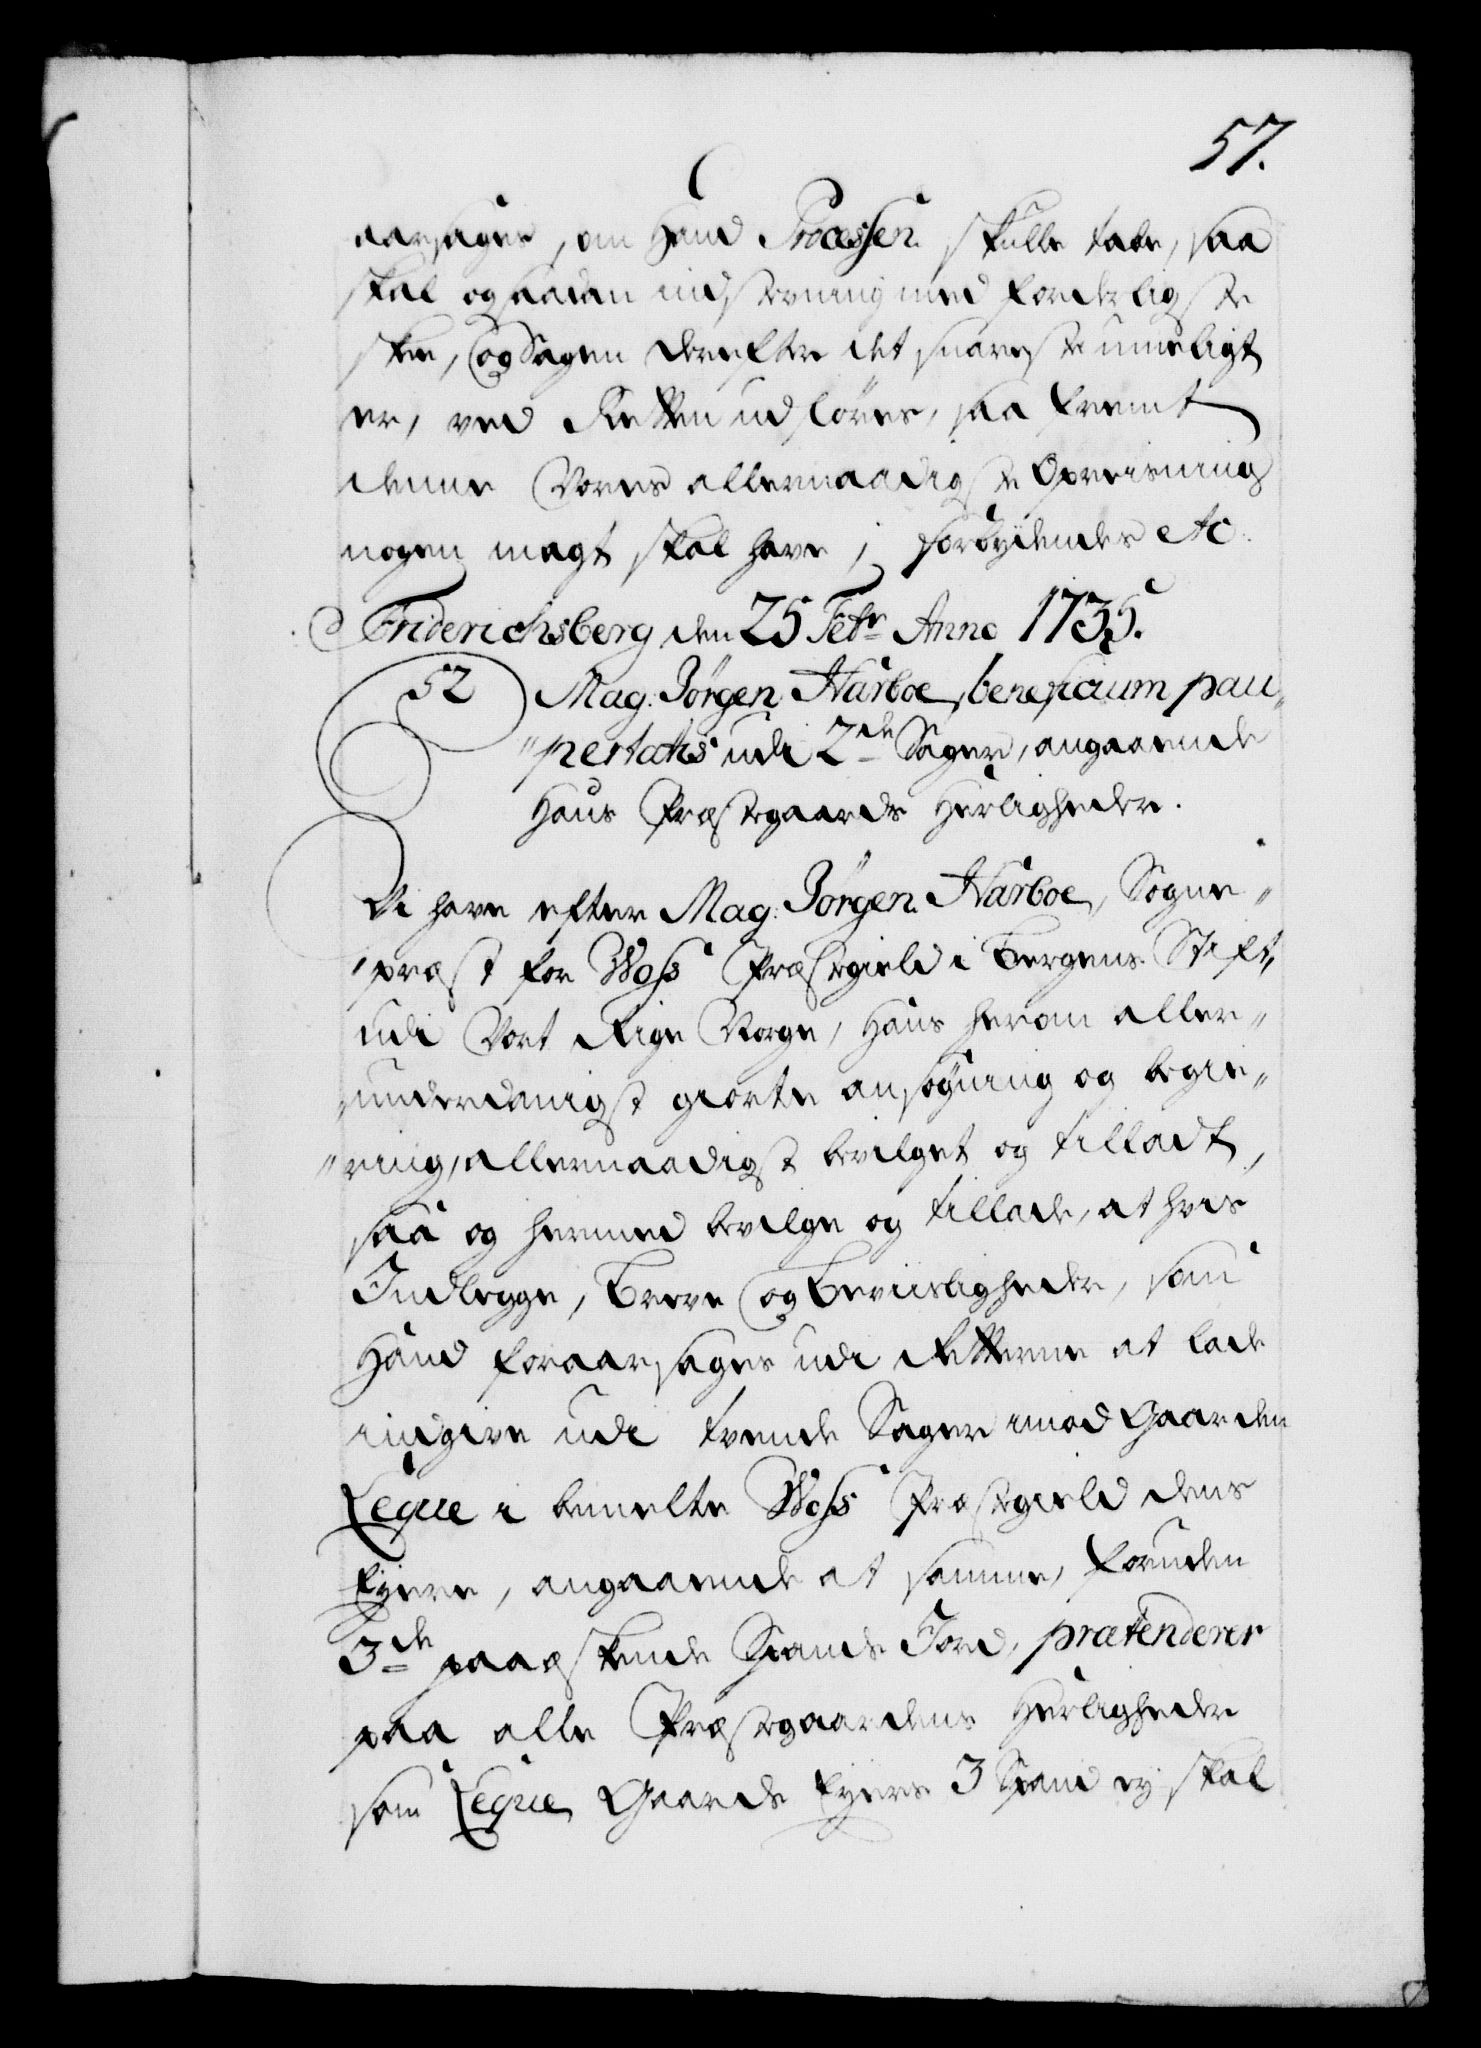 57.
aarsages, om hand Processen skulle tabe, saa
skal og saadan indstevning med forderligste
skee, og Sagen derefter det snareste mueligt
er, ved Retten udføres, saa fremt
denne Vores allernaadigste Opreisning
nogen magt skal have, forbydendes etc.
Friderichsberg den 25 Febr. Anno 1735.
52 Mag: Jørgen Harboe, beneficium pau„
„pertatis udi 2de Sager, angaaende
Hans Præstegaards Herligheder.
Vi have efter Mag: Jørgen Harboe, Sogne„
„præst for Woss Præstegield i Bergens Stift,
udi Vort Rige Norge, Hans herom aller„
„underdanigst giorte ansøgning og begie„
„ring, allernaadigst bevilget og tilladt,
saa og hermed bevilge og tillade, at hvis
Indlegge, Breve og Beviisligheder, som
Hand foraarsages udi Retterne at lade
indgive udi tvende Sager imod Gaarden
Leque i bemelte Woss Præstegield dens
Eyere, angaaende at samme, foruden
3de paaæskende Spands Jord, prætenderer
paa alle Præstegaardens Herligheder
som Leque Gaards Eyeres 3 Spand ey skal